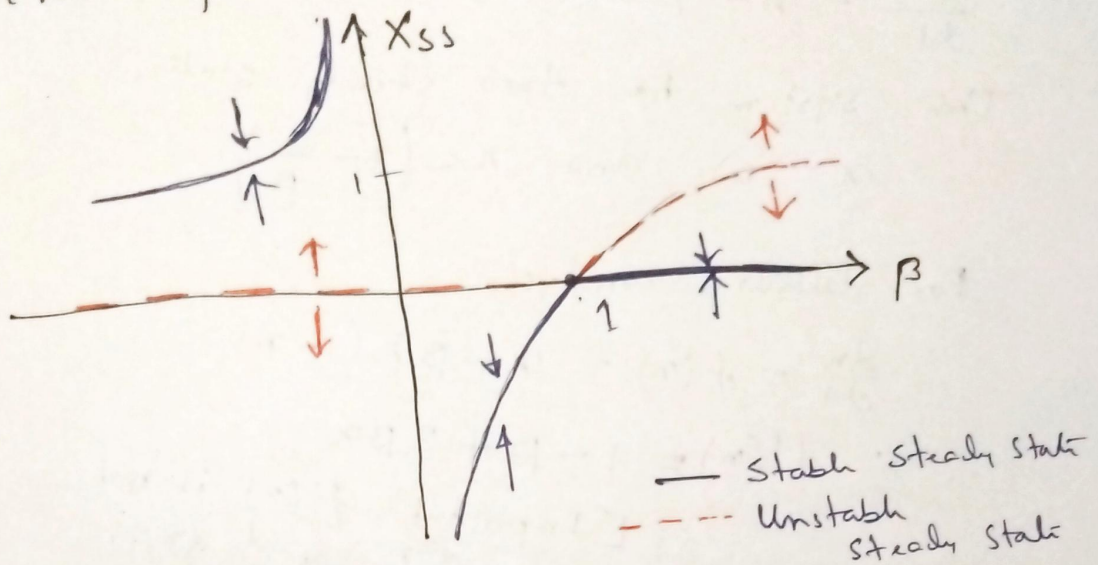 Xss
1
β
1
Stable Steady State
Unstable
Steady State